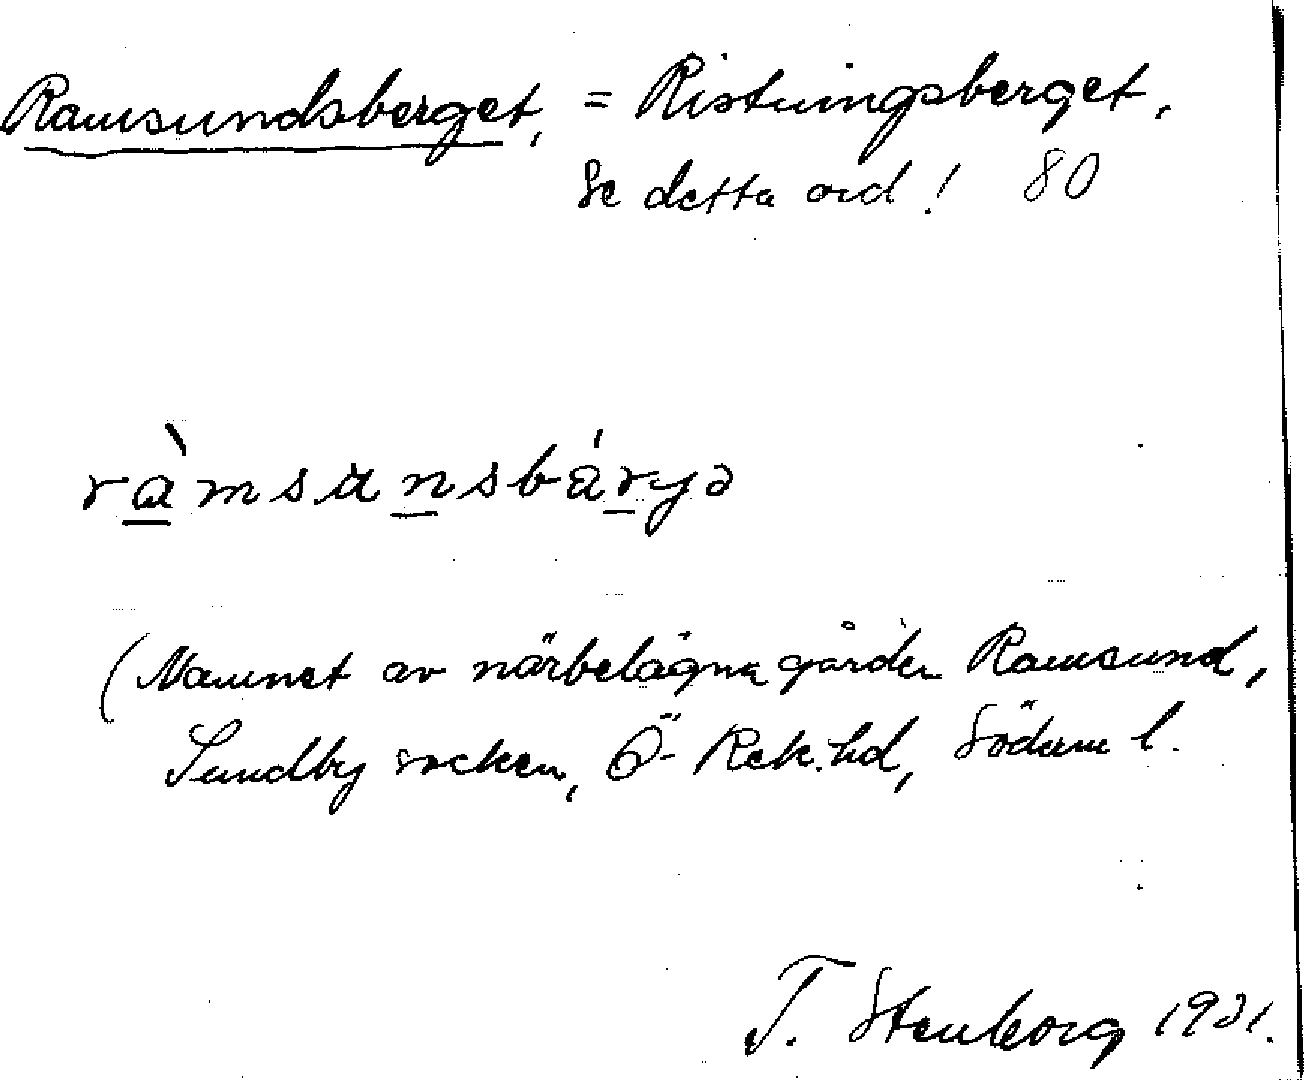 Ramsundsberget, = Ristningsberget,
Se detta ord! 80
ràmsunsbáryə
(Namnet av närbelägna gården Ramsund,
Sundby socken, Ö-Rek.hd, Söderm l.
T. Stenborg 1931.